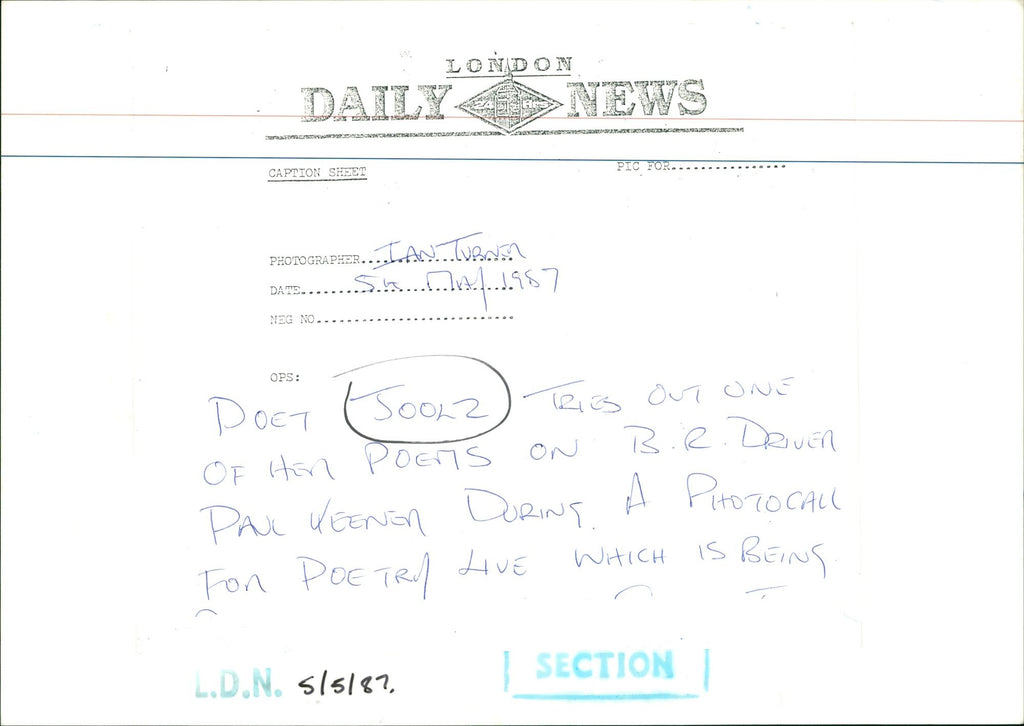 LONDON
DAILY NEWS
CAPTION SHEET
PIC FOR................
PHOTOGRAPHER...IAN TURNER
DATE...5th MAY 1987
NEG NO..........................
OPS:
POET JOOLZ TRIES OUT ONE
OF HER POEMS ON B.R. DRIVER
PAUL KEENER DURING A PHOTOCALL
FOR POETRY LIVE WHICH IS BEING
L.D.N. 5/5/87.
SECTION